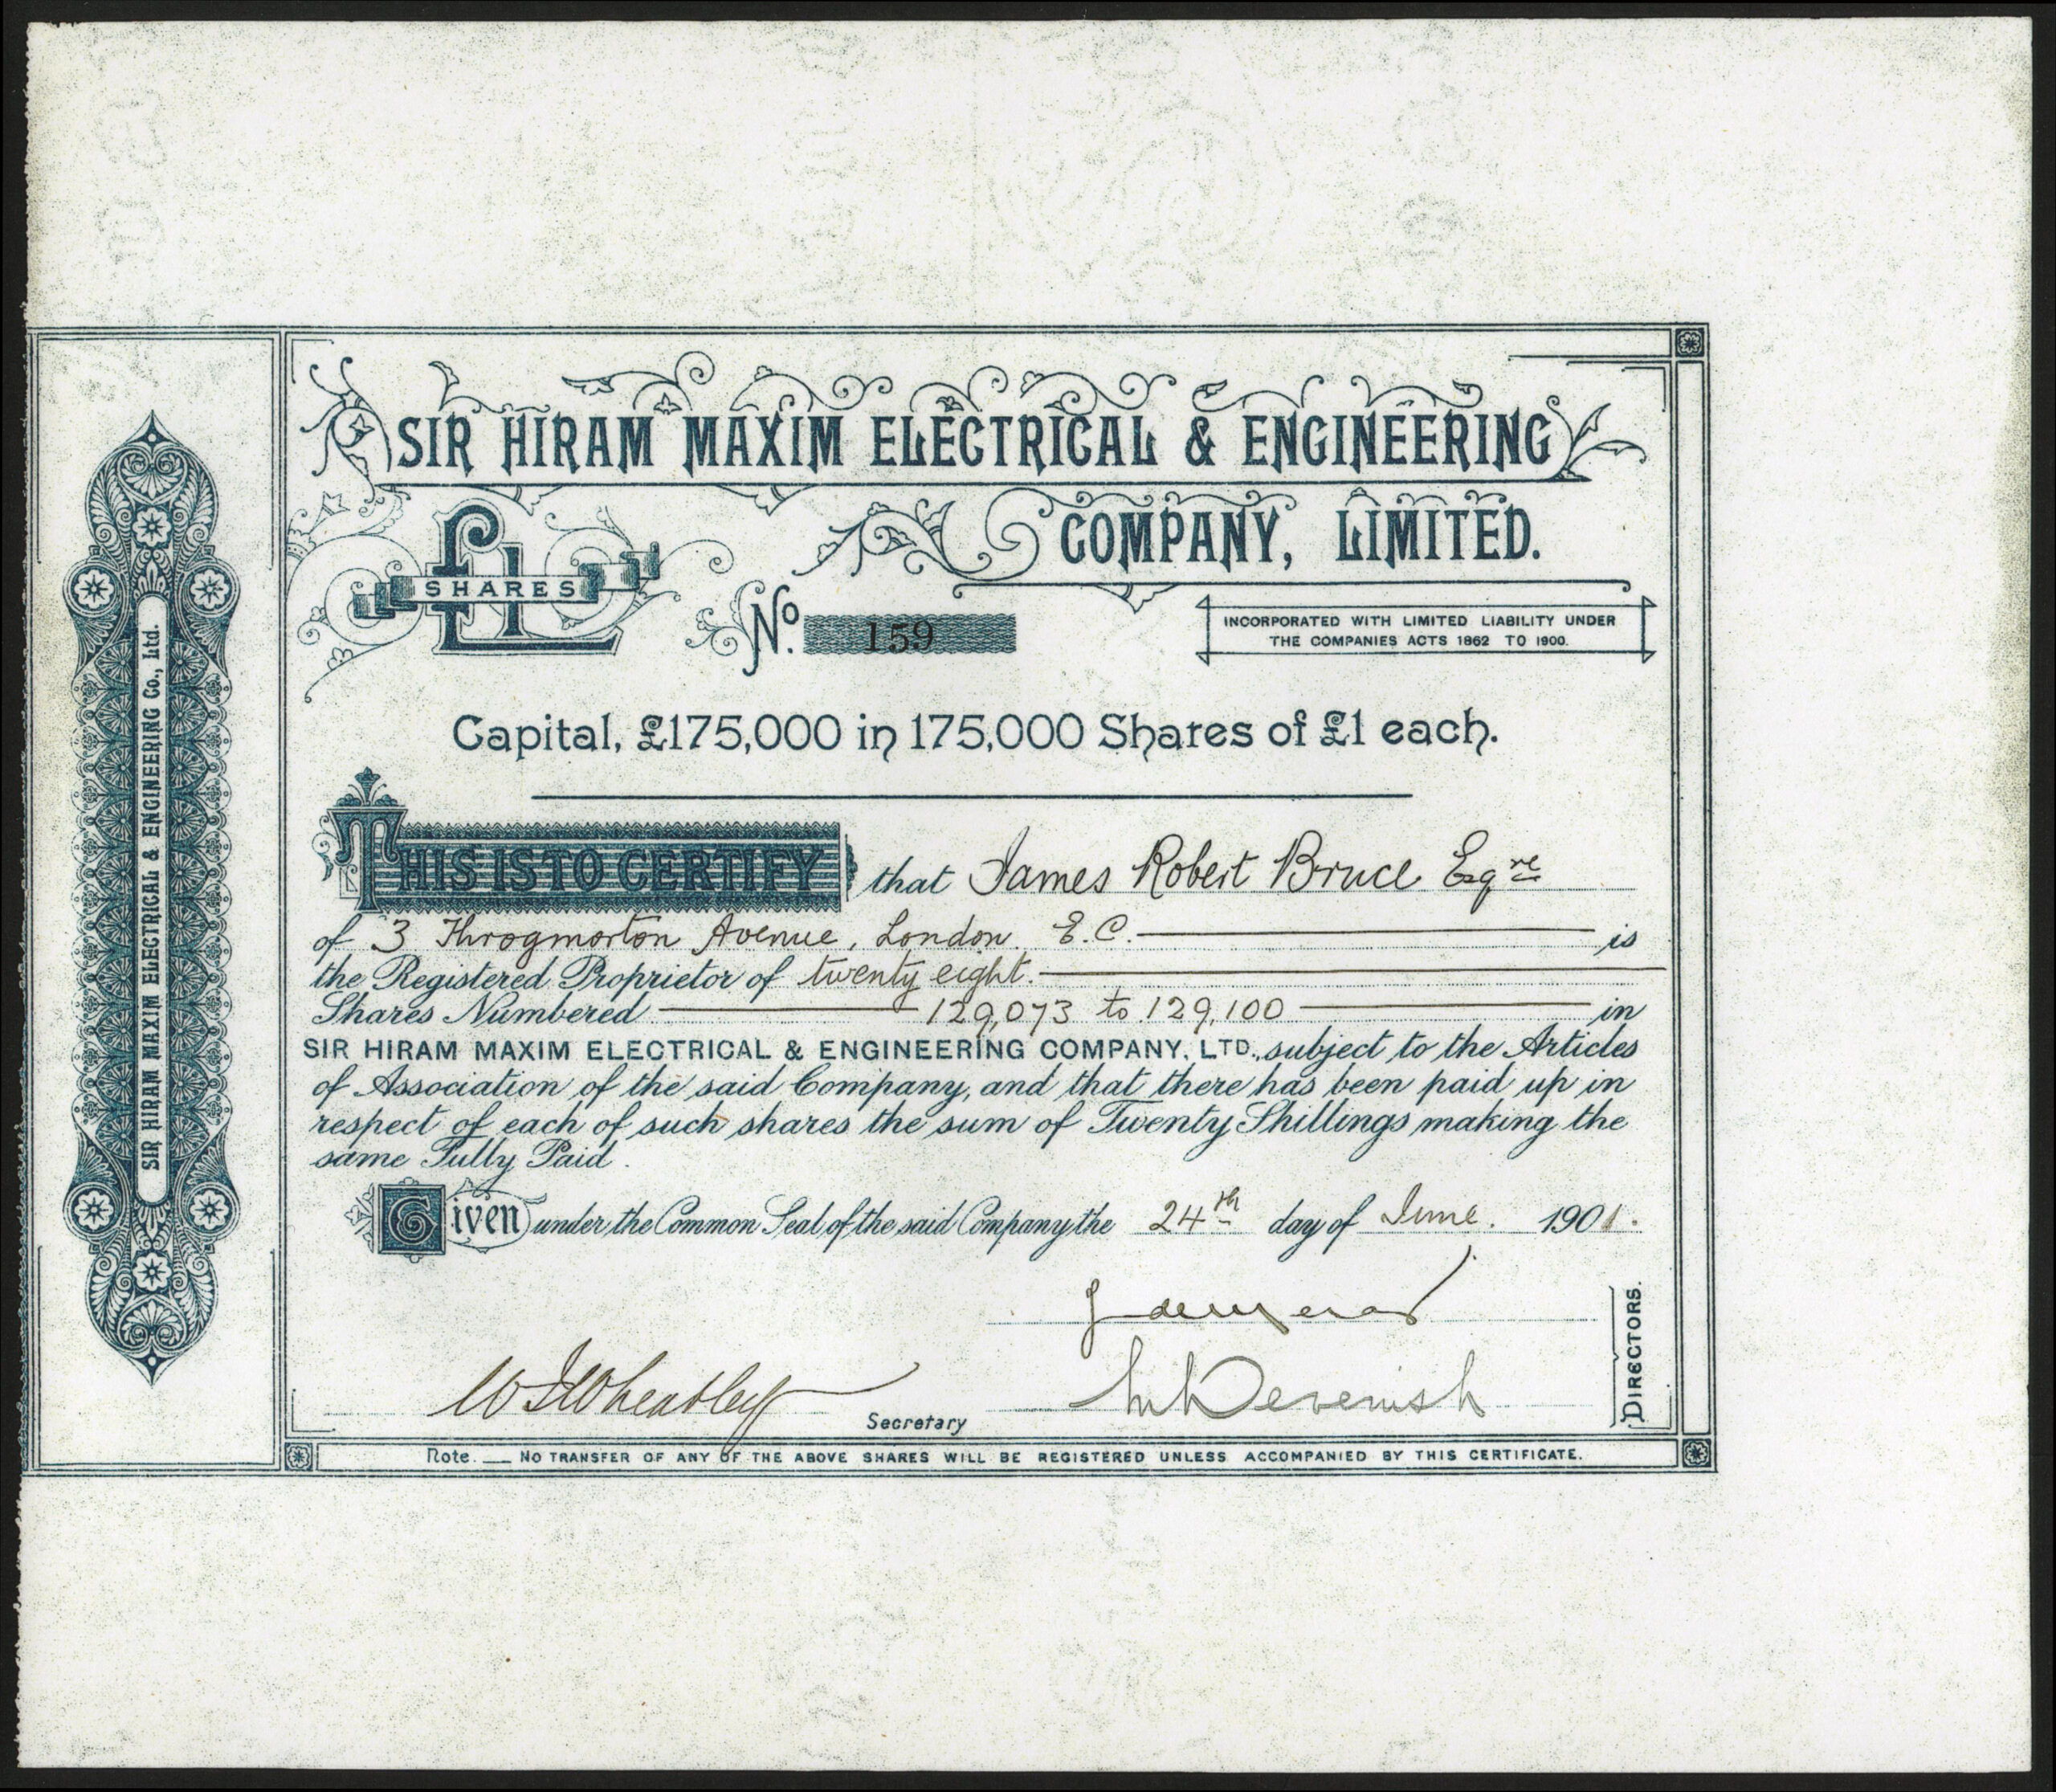 SIR HIRAM MAXIM ELECTRICAL & ENGINEERING Co., Ltd.
SIR HIRAM MAXIM ELECTRICAL & ENGINEERING
COMPANY, LIMITED.
£1
SHARES
No. 159
INCORPORATED WITH LIMITED LIABILITY UNDER
THE COMPANIES ACTS 1862 TO 1900.
Capital, £175,000 in 175,000 Shares of £1 each.
THIS IS TO CERTIFY that James Robert Bruce Esqre
of 3 Throgmorton Avenue, London. E.C. is
the Registered Proprietor of twenty eight.
Shares Numbered 129,073 to 129,100 in
SIR HIRAM MAXIM ELECTRICAL & ENGINEERING COMPANY, LTD., subject to the Articles
of Association of the said Company, and that there has been paid up in
respect of each of such shares the sum of Twenty Shillings making the
same Fully Paid.
Given under the Common Seal of the said Company the 24th day of June. 1901.
DIRECTORS.
W Wheatley
Devenish
Secretary
Note. NO TRANSFER OF ANY OF THE ABOVE SHARES WILL BE REGISTERED UNLESS ACCOMPANIED BY THIS CERTIFICATE.